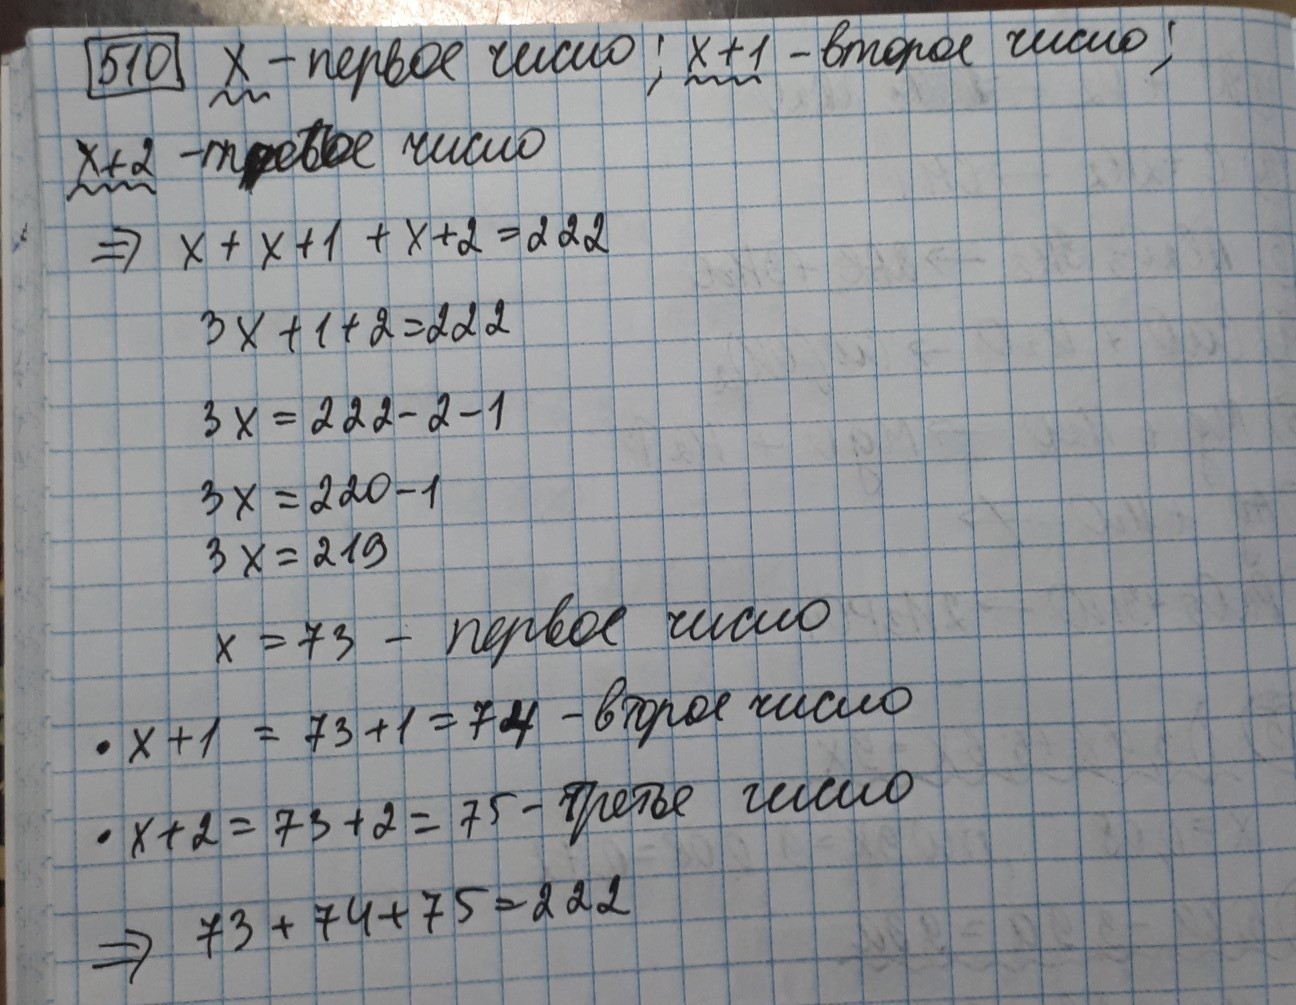 510 x – первое число; x+1 – второе число;
x+2 – третье число
⇒ x + x + 1 + x + 2 = 222
3x + 1 + 2 = 222
3x = 222 - 2 - 1
3x = 220 - 1
3x = 219
x = 73 – первое число
• x + 1 = 73 + 1 = 74 – второе число
• x + 2 = 73 + 2 = 75 – третье число
⇒ 73 + 74 + 75 = 222